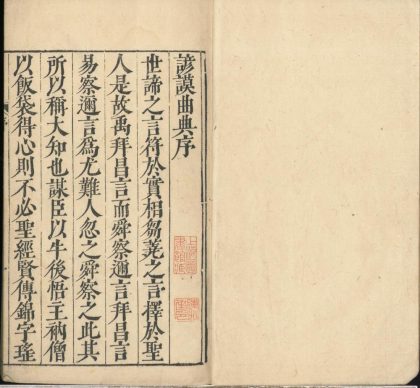 諺謨曲典序
世諦之言符於實相芻蕘之言擇於聖
人是故禹拜昌言而舜察邇言拜昌言
易察邇言爲尤難人忽之舜察之此其
所以稱大知也謀臣以牛後悟王衲僧
以飯袋得心則不必聖經賢傳錦字瑤